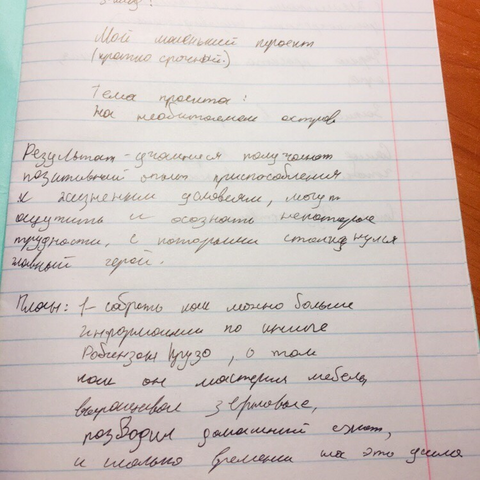 Мой маленький проект
(кратко срочный)
Тема проекта:
На необитаемом острове
Результат - учащиеся получают
позитивный опыт приспособления
к жизненным условиям, могут
ощутить и осознать некоторые
трудности, с которыми столкнулся
главный герой.
План: 1- собрать как можно больше
информации по книге
Робинзон Крузо, о том
как он мастерил мебель,
выращивал зерновые,
разводил домашний скот,
и сколько времени на это ушло